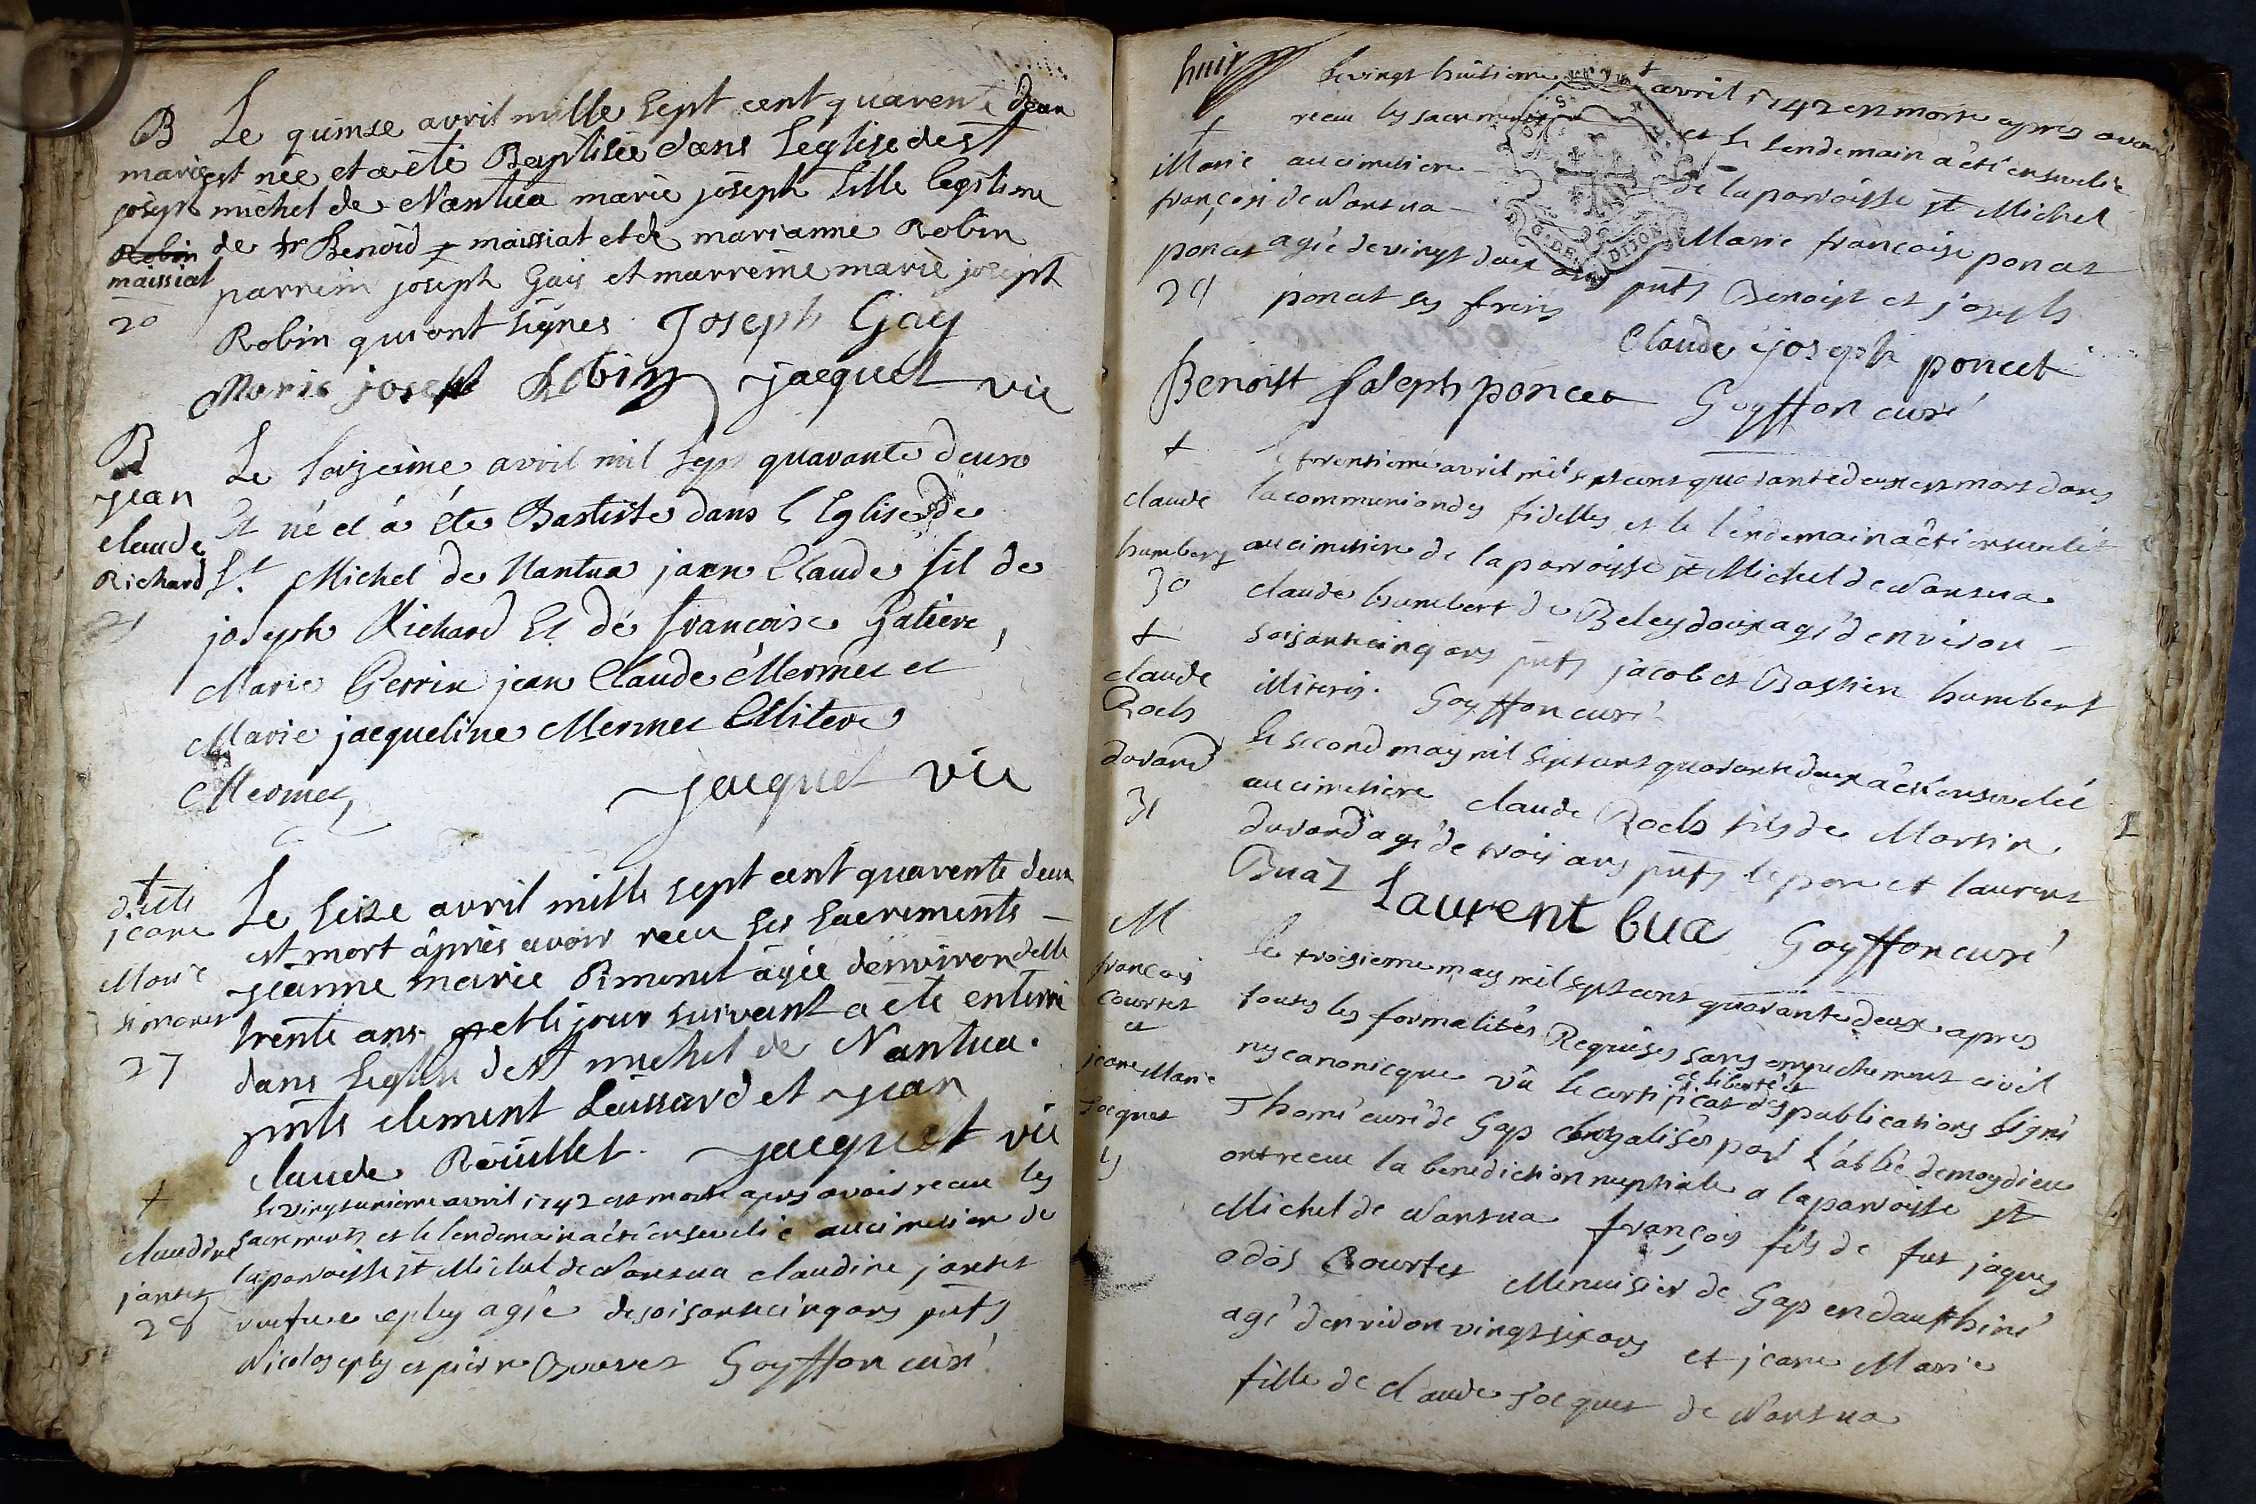 B
marie
joseph
Robin
maissiat
20
Le quinse avril mille sept cent quarente deux
est née et a été Baptisée dans Leglise de st
michel de Nantua marie joseph fille legitime
de sr Benoid maissiat et de marianne Robin
parrein joseph Gais et marreine marie joseph
Robin qui ont signés Joseph Gay
Marie joseph Robin jacquet vic
B
jean
claude
Richard
21
Le seizeime avril mil sept quarante deux
Et né et à éte Bastiste dans l Eglise de
St. Michel de Nantua jean Claude fil de
joseph Richard Et de francoise
Marie Perrin jean Claude Mermet et
Marie jacqueline Mermet
Mermet,
jacquet vic
†
jeane
Marie
simonet
27
Le seize avril mille sept cent quarente deux
est mort aprés avoir recu ses sacrements
jeanne marie Simonet agée denviron
trente ans et le jour suivant a été enterré
dans leglise de st michel de Nantua.
pnts clement Laissard et jean
claude Roüillet. jacquet vic
†
claudine
jantet
28
le vingt unieme avril 1742 est morte apres avoir receu les
sacrements et le lendemain a été ensevelie au cimetiere de
la parroisse st Michel de Nantua claudine jantet
agée de soisante cinq ans pnts
Nicolas et pierre Bouvet Goyffon curé
huit
†
Marie
françoise
poncet
29
Le vingt huitieme avril 1742 est morte apres avoir
receu les sacrements et le lendemain a été ensevelie
au cimetiere de la parroisse st Michel
de Nantua Marie françoise poncet
agée de vingt deux ans pnts Benoist et joseph
poncet ses freres
Claude joseph poncet
Benoist Joseph poncet Goyffon curé
†
claude
humbert
30
le trentieme avril mil sept cent quarante deux est mort dans
la communion des fidelles et le lendemain a été enseveli
au cimetiere de la parroisse st Michel de Nantua
claude humbert de Beleydoux agé d'environ
soisante cinq ans pnts jacob et Bastien humbert
illiterés. Goyffon curé
†
claude
Roch
duvard
31
le second may mil sept cent quarante deux a été enseveli
au cimetiere claude Roch fils de Martin
duvard agé de trois ans pnts le pere et laurent
Buaz Laurent bua Goyffon curé
M
françois
Courtet
et
jeane Marie
jacquet
5
le troisieme may mil sept cent quarante deux apres
toutes les formalités Requises sans empechement civil
ny canonicque vû le certificat de liberté et des publications signé
Thomé curé de Gap legalisés par L'abbé de moydieu
ont receu la benediction nuptiale a la parroisse st
Michel de Nantua françois fils de fut jaques
odos Courtet Menuisier de Gap en dauphiné
agé d'environ vingt six ans et jeane Marie
fille de claude jacquet de Nantua
G. DE DIJON